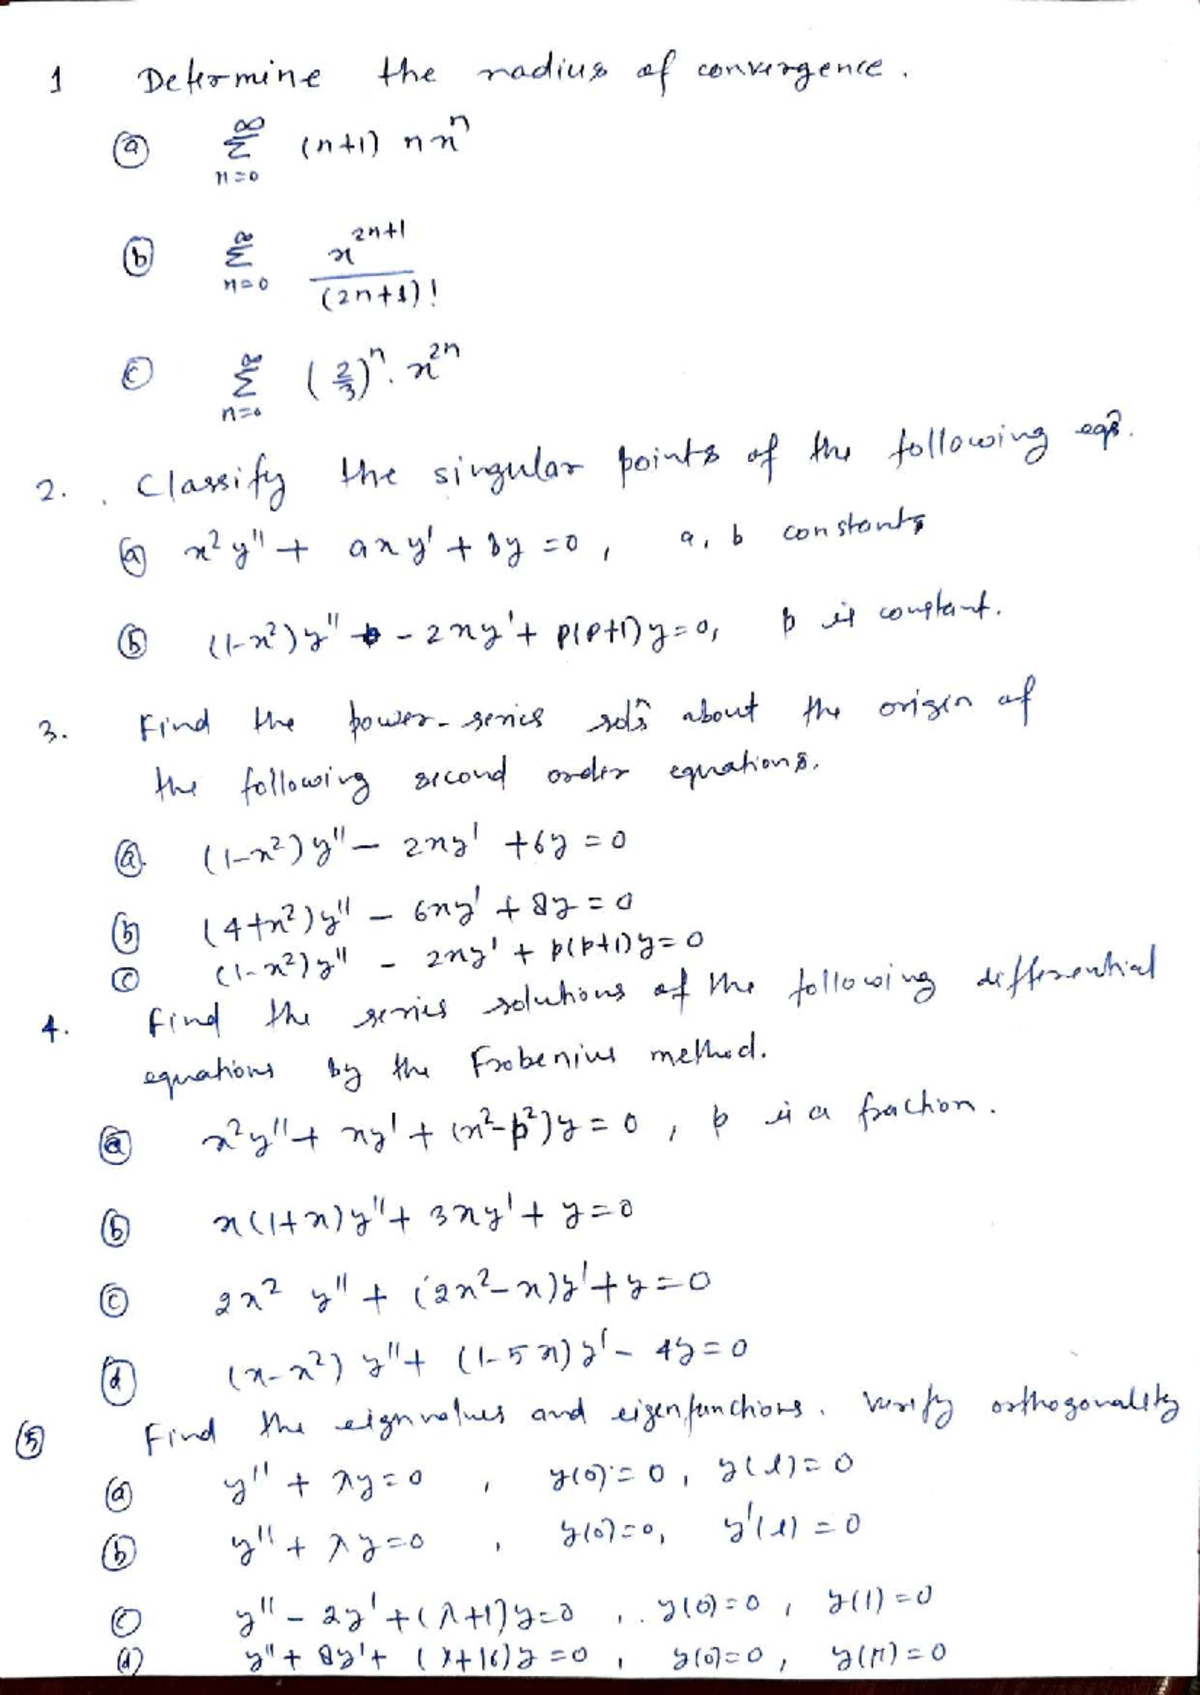 1 Determine the radius of convergence.
(a) ∑_{n=0}^{∞} (n+1) n x^n
(b) ∑_{n=0}^{∞} x^{2n+1} / (2n+1)!
(c) ∑_{n=0}^{∞} (2/3)^n . x^{2n}
2. Classify the singular points of the following eqs.
(a) x² y'' + a x y' + b y = 0 , a, b constants
(b) (1-x²) y'' - 2xy' + p(p+1) y = 0, p is constant.
3. Find the power-series sols about the origin of
the following second order equations.
(a) (1-x²) y'' - 2xy' + 6y = 0
(b) (4+x²) y'' - 6xy' + 8y = 0
(c) (1-x²) y'' - 2xy' + p(p+1) y = 0
4. Find the series solutions of the following differential
equations by the Frobenius method.
(a) x² y'' + xy' + (x²-p²) y = 0 , p is a fraction.
(b) x(1+x) y'' + 3xy' + y = 0
(c) 2x² y'' + (2x²-x) y' + y = 0
(d) (x-x²) y'' + (1-5x) y' - 4y = 0
(5) Find the eigenvalues and eigenfunctions. Verify orthogonality
(a) y'' + λy = 0 , y(0) = 0 , y(l) = 0
(b) y'' + λy = 0 , y(0) = 0, y'(l) = 0
(c) y'' - 2y' + (λ+1) y = 0 , y(0) = 0 , y(1) = 0
(d) y'' + 8y' + (λ+16) y = 0 , y(0) = 0 , y(π) = 0